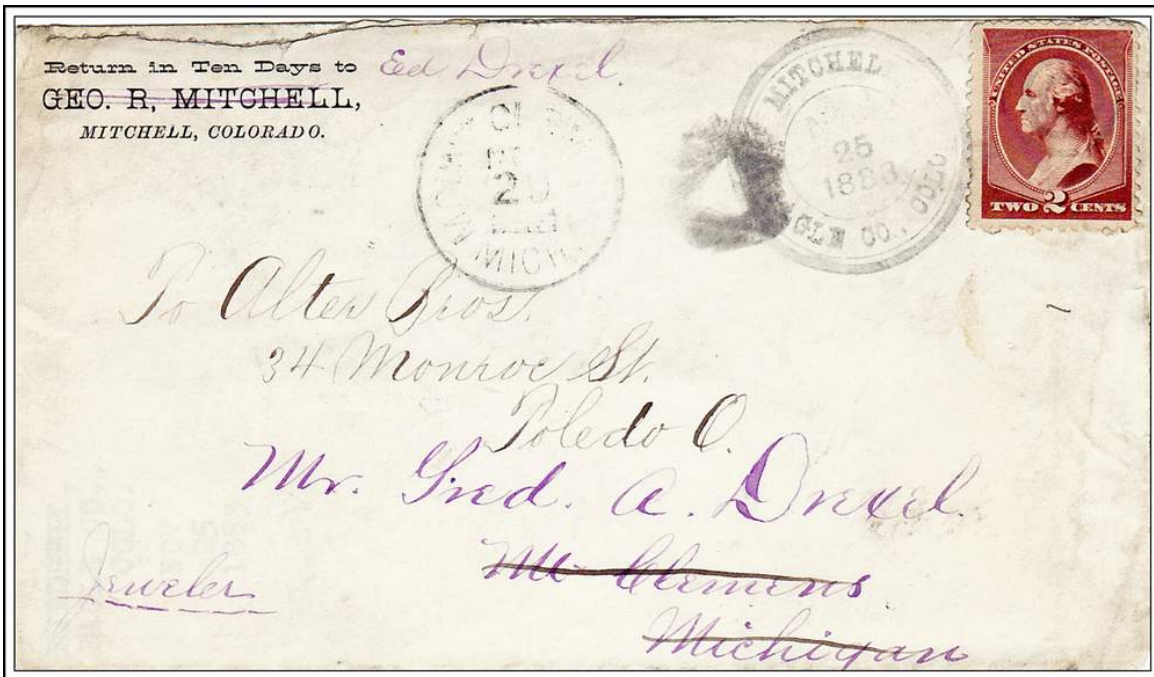 Return in Ten Days to
Ed Drexel
GEO. R, MITCHELL,
MITCHELL, COLORADO.
MITCHELL
25
188
GLE CO., COLO
MOUNT CL
2
MICH
UNITED STATES POSTAGE
TWO 2 CENTS
To Alter Bros.
34 Monroe St.
Toledo O.
Mr. Fred. A. Drexel
Mt Clemens
Michigan
Jeweler